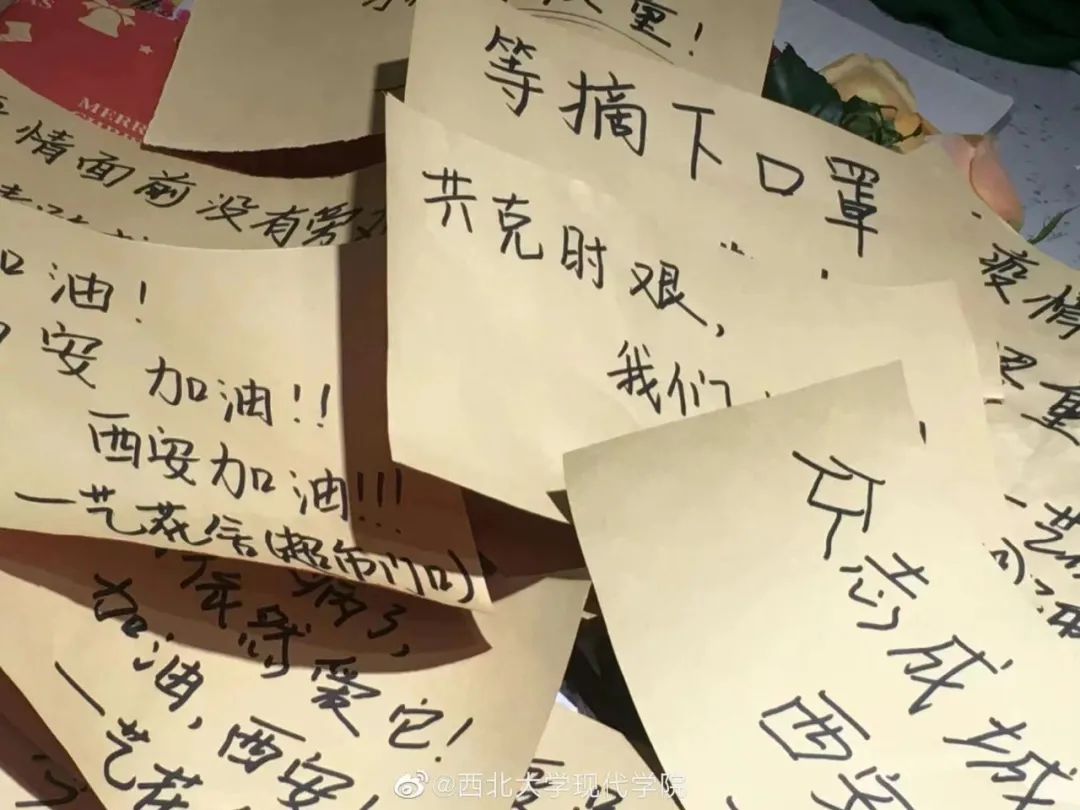 重!
等摘下口罩
共克时艰,
我们
MERR
情面前没有旁
加油!
安 加油!!
西安加油!!!
一艺花信(超市门口)
病了,
爱它!
加油,西安
一艺花
疫情
重
一艺
众志成城
西安
@西北大学现代学院